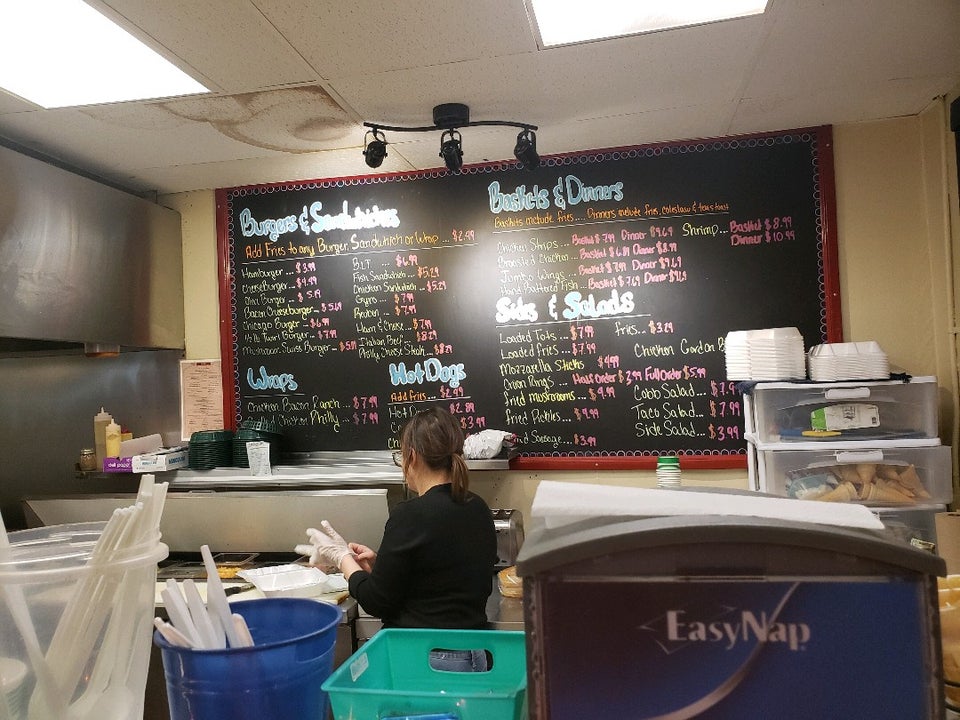 Burgers & Sandwiches
Add Fries to any Burger, Sandwich or Wrap ... $2.99
Hamburger ... $3.99
Cheeseburger ... $4.99
Olive Burger ... $5.19
Bacon Cheeseburger ... $5.69
Chicago Burger ... $6.99
Burger ... $7.99
Mushroom Swiss Burger ... $5.19
B.L.T ... $6.99
Fish Sandwich ... $5.29
Chicken Sandwich ... $5.29
Gyro ... $7.99
Reuben ... $7.99
Ham & Cheese ... $7.99
Italian Beef ... $8.29
Philly Cheese Steak ... $8.29
Wraps
Chicken Bacon Ranch ... $7.99
Chicken Philly ... $7.99
Hot Dogs
Add fries ... $2.99
Hot D $2.89
$3.99
Baskets & Dinners
Baskets include fries.... Dinners include fries, coleslaw & texas toast
Chicken Strips ... Basket $7.99 Dinner $9.69
Broasted Chicken ... Basket $6.89 Dinner $8.99
Jumbo Wings ... Basket $7.99 Dinner $9.69
Hand Battered Fish ... Basket $7.69 Dinner $9.69
Shrimp ... Basket $8.99
Dinner $10.99
Sides & Salads
Loaded Tots ... $7.99
Loaded Fries ... $7.99
Mozzarella Sticks ... $4.99
Onion Rings ... Half Order $3.99 Full Order $5.99
fried mushrooms ... $4.99
fried Pickles ... $4.99
Sausage ... $3.99
fries ... $3.29
Chicken Cordon B
Cobb Salad ... $7.9
Taco Salad ... $7.99
Side Salad ... $3.99
EasyNap